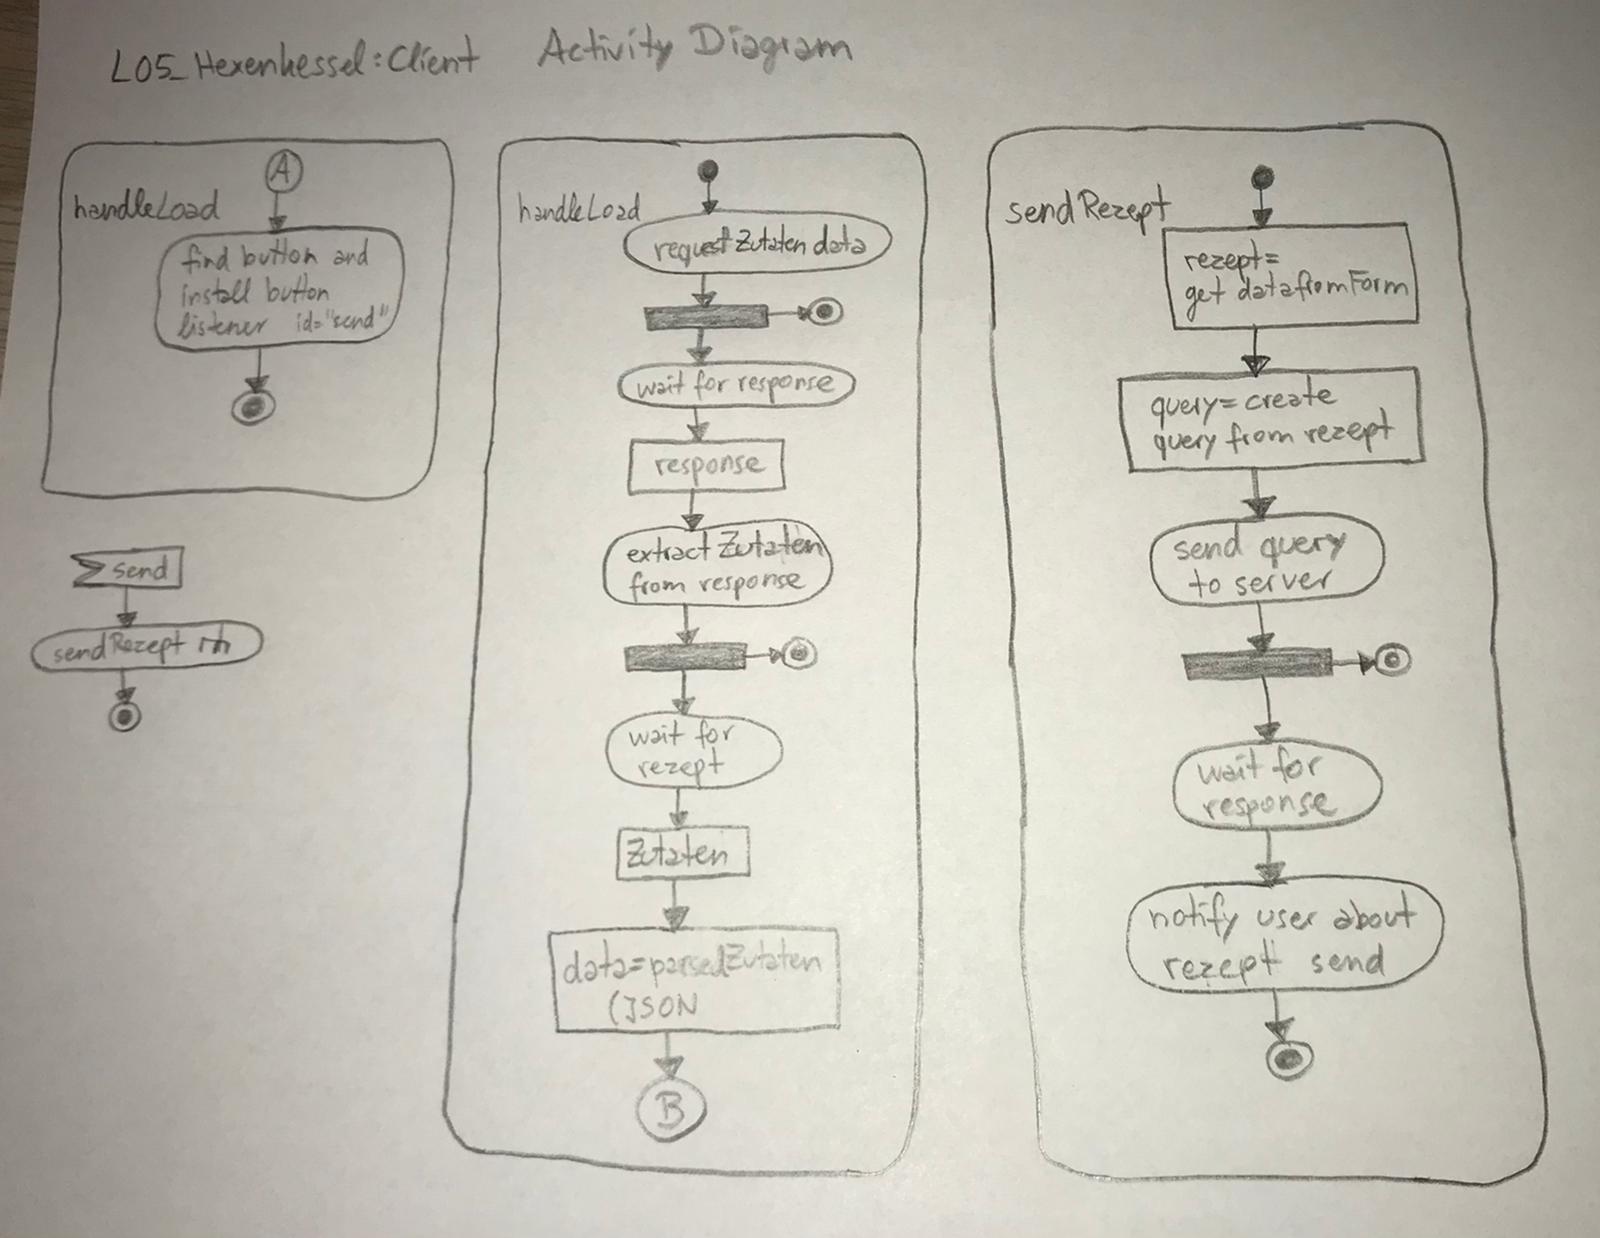 L05_Hexenkessel: Client Activity Diagram
A
handleLoad
find button and
install button
listener id="send"
send
sendRezept
handleLoad
request Zutaten data
wait for response
response
extract Zutaten
from response
wait for
rezept
Zutaten
data=parsedZutaten
(JSON
B
sendRezept
rezept=
get datafromForm
query=create
query from rezept
send query
to server
wait for
response
notify user about
rezept send